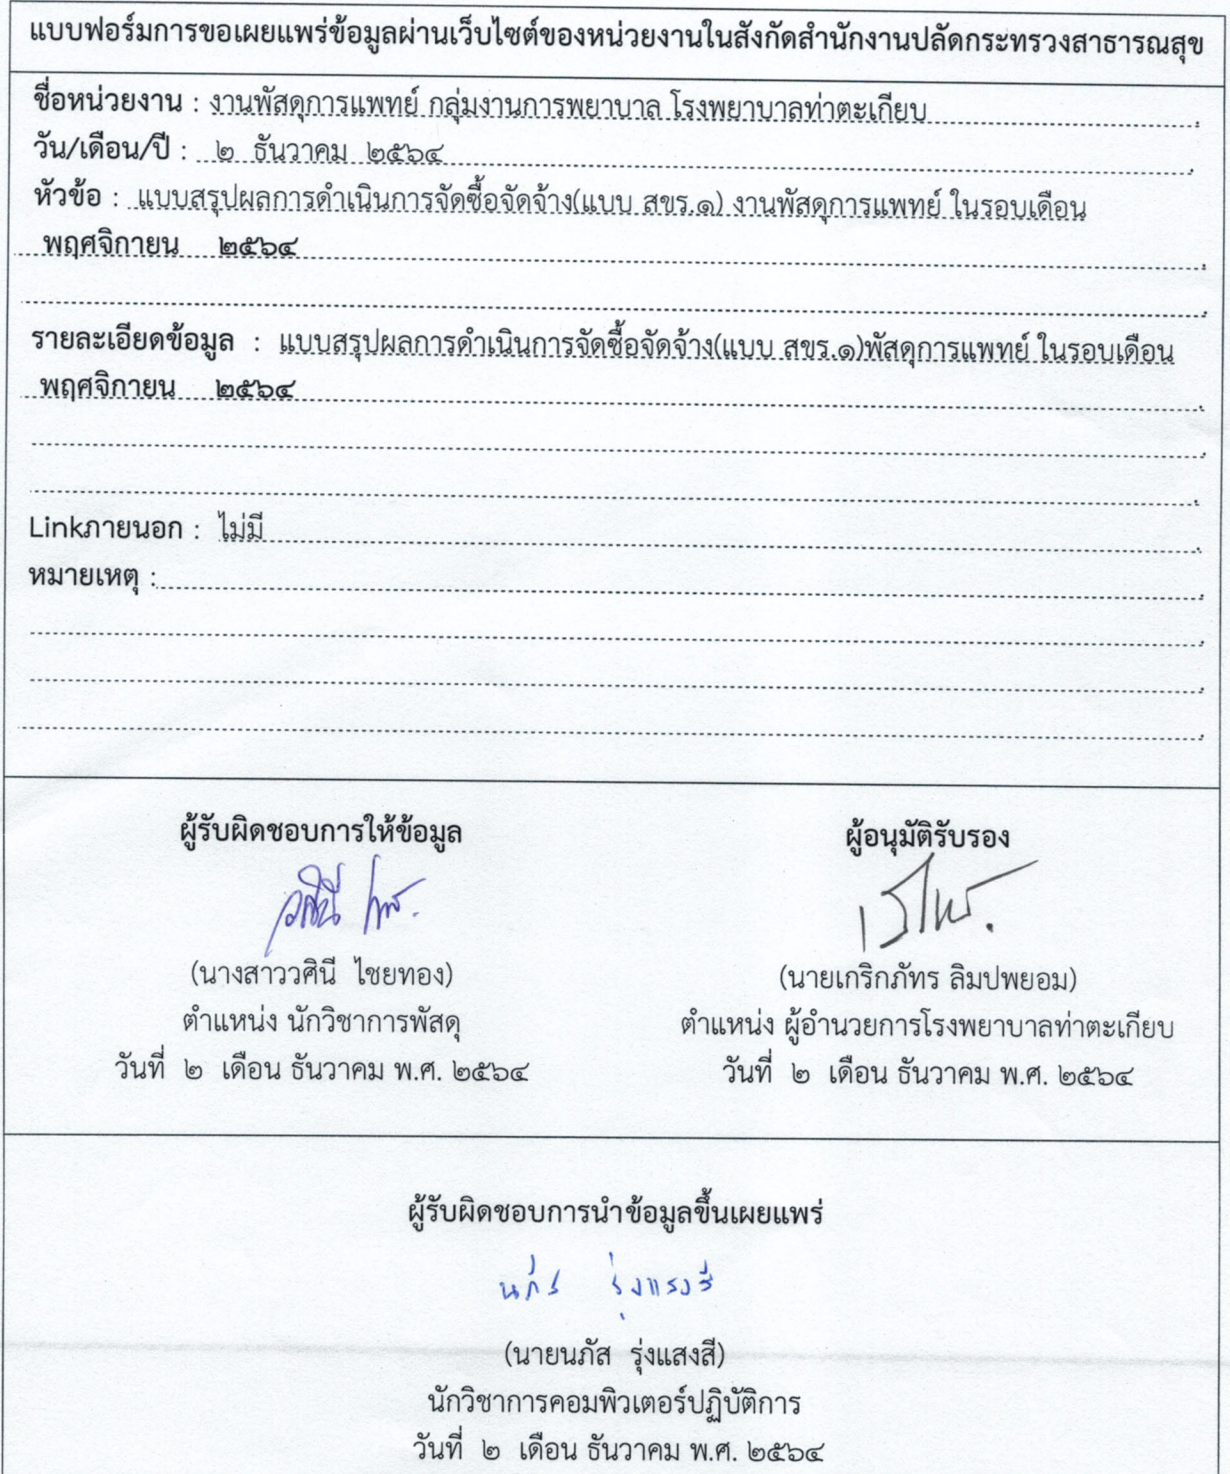 แบบฟอร์มการขอเผยแพร่ข้อมูลผ่านเว็บไซต์ของหน่วยงานในสังกัดสำนักงานปลัดกระทรวงสาธารณสุข
ชื่อหน่วยงาน : งานพัสดุการแพทย์ กลุ่มงานการพยาบาล โรงพยาบาลท่าตะเกียบ
วัน/เดือน/ปี : ๒ ธันวาคม ๒๕๖๔
หัวข้อ : แบบสรุปผลการดำเนินการจัดซื้อจัดจ้าง(แบบ สขร.๑) งานพัสดุการแพทย์ ในรอบเดือน
พฤศจิกายน ๒๕๖๔
รายละเอียดข้อมูล : แบบสรุปผลการดำเนินการจัดซื้อจัดจ้าง(แบบ สขร.๑)พัสดุการแพทย์ ในรอบเดือน
พฤศจิกายน ๒๕๖๔
Linkภายนอก : ไม่มี
หมายเหตุ :
ผู้รับผิดชอบการให้ข้อมูล
(นางสาววศินี ไชยทอง)
ตำแหน่ง นักวิชาการพัสดุ
วันที่ ๒ เดือน ธันวาคม พ.ศ. ๒๕๖๔
ผู้อนุมัติรับรอง
(นายเกริกภัทร ลิมปพยอม)
ตำแหน่ง ผู้อำนวยการโรงพยาบาลท่าตะเกียบ
วันที่ ๒ เดือน ธันวาคม พ.ศ. ๒๕๖๔
ผู้รับผิดชอบการนำข้อมูลขึ้นเผยแพร่
นภัส รุ่งแสงสี
(นายนภัส รุ่งแสงสี)
นักวิชาการคอมพิวเตอร์ปฏิบัติการ
วันที่ ๒ เดือน ธันวาคม พ.ศ. ๒๕๖๔